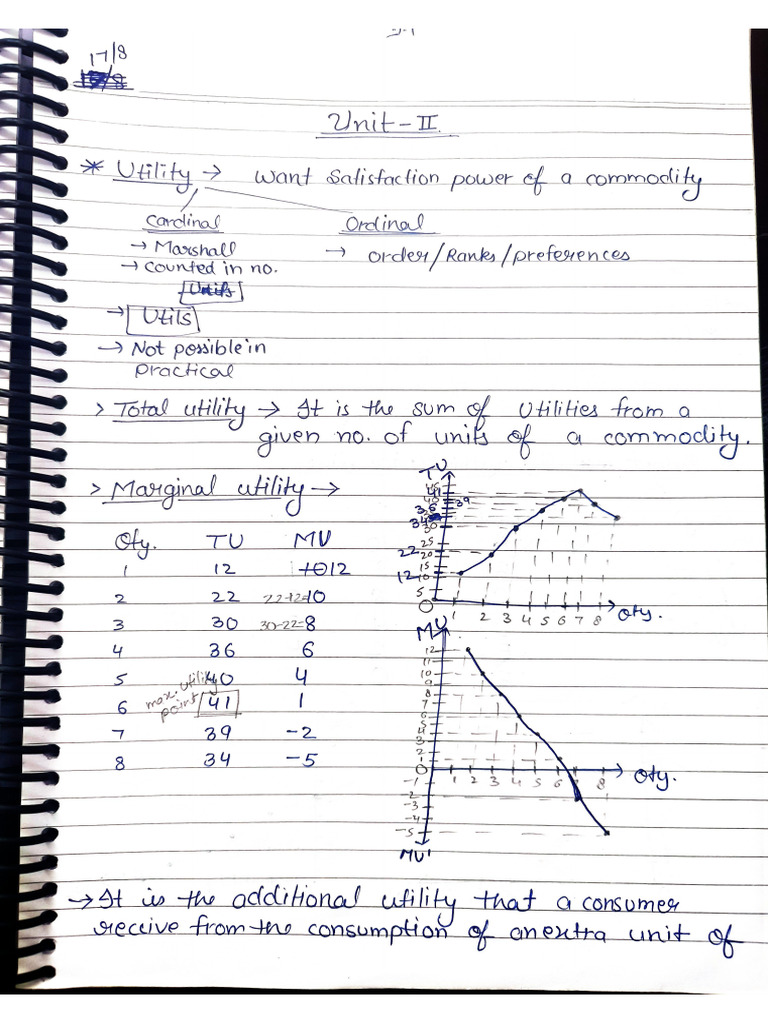 17/8
Unit-II
* Utility → want satisfaction power of a commodity
Cardinal Ordinal
→ Marshall → order/Ranks/preferences
→ counted in no.
Units
→ Utils
→ Not possible in
practical
> Total utility → It is the sum of Utilities from a
given no. of units of a commodity.
> Marginal utility →
Qty. TU MU
1 12 +0 12
2 22 22-12=10
3 30 30-22=8
4 36 6
5 40 4
max. utility
point
6 41 1
7 39 -2
8 34 -5
TU
45
41
40
39
36
35
34
30
25
22
20
15
12
10
5
O 1 2 3 4 5 6 7 8 Qty.
MU
12
11
10
9
8
7
6
5
4
3
2
1
O 1 2 3 4 5 6 8 Qty.
-1
-2
-3
-4
-5
MU'
→ It is the additional utility that a consumer
receive from the consumption of an extra unit of